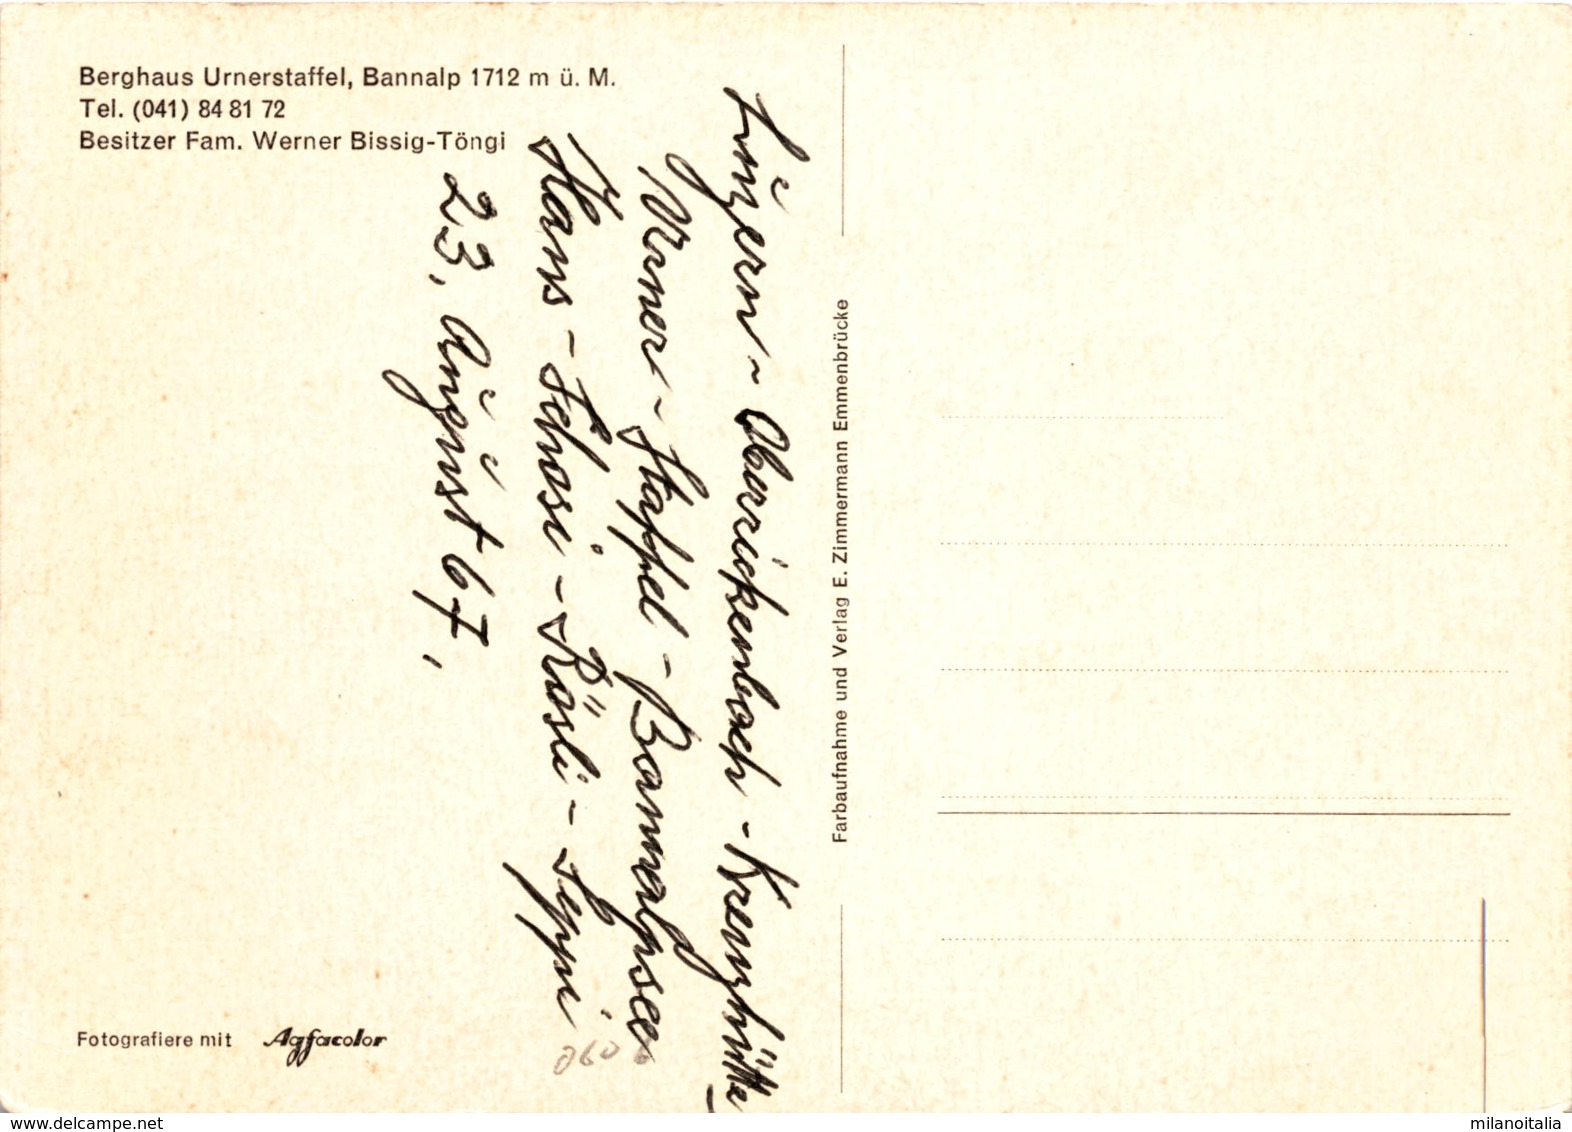 Berghaus Urnerstaffel, Bannalp 1712 m ü. M.
Tel. (041) 84 81 72
Besitzer Fam. Werner Bissig-Töngi
Luzern - Oberrickenbach - Kreuzhütte -
Urner - Staffel - Bannalpsee
Hans - Schosi - Rösli - Seppi
23. August 67.
Farbaufnahme und Verlag E. Zimmermann Emmenbrücke
Fotografiere mit Agfacolor
delcampe.net
milanoitalia